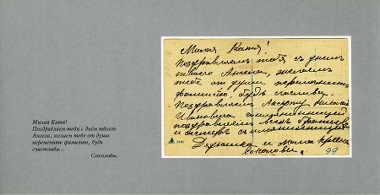 Милая Катя!
Поздравляем тебя с днем твоего
Ангела, желаем тебе от души
переменить фамилию, будь
счастлива...
Соколовы.
Милая Катя!
Поздравляем тебя с днем
твоего Ангела, желаем
тебе от души переменить
фамилию, будь счастлива.
Поздравляем
Ивановича с именинницей
поздравляем
и сестер с именинницей
Дедушка и
Соколовы.
99